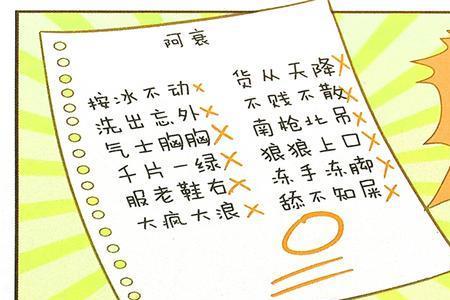 阿衰
按冰不动
洗出忘外
气士胸胸
千片一绿
服老鞋右
大疯大浪
货从天降
不贱不散
南枪北吊
狼狼上口
冻手冻脚
舔不知屎